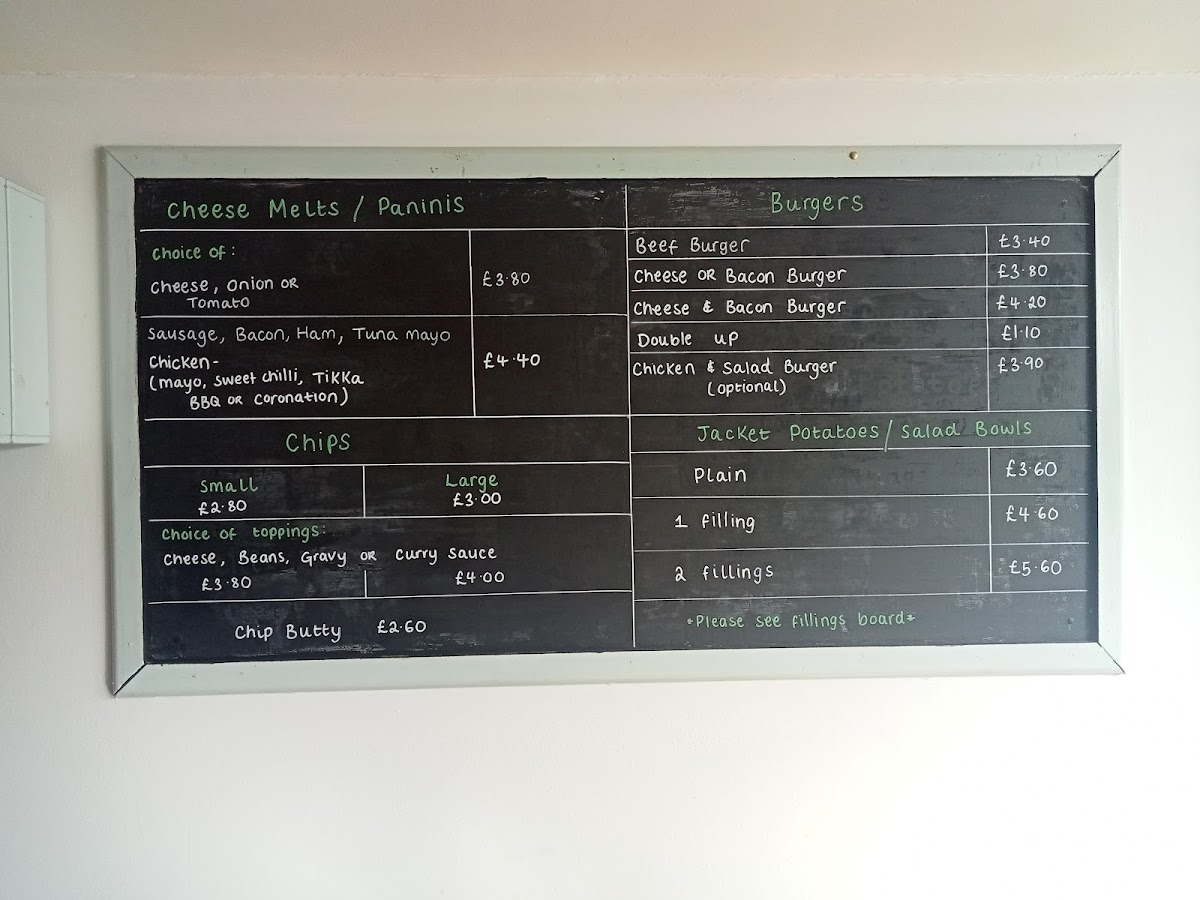 Cheese Melts / Paninis
Choice of:
Cheese, Onion OR
Tomato
£3.80
Sausage, Bacon, Ham, Tuna mayo
Chicken-
(mayo, sweet chilli, Tikka
BBQ OR coronation)
£4.40
Chips
Small
£2.80
Large
£3.00
Choice of toppings:
Cheese, Beans, Gravy OR Curry Sauce
£3.80
£4.00
Chip Butty £2.60
Burgers
Beef Burger £3.40
Cheese OR Bacon Burger £3.80
Cheese & Bacon Burger £4.20
Double up £1.10
Chicken & Salad Burger £3.90
(optional)
Jacket Potatoes / Salad Bowls
Plain £3.60
1 filling £4.60
2 fillings £5.60
*Please see fillings board*